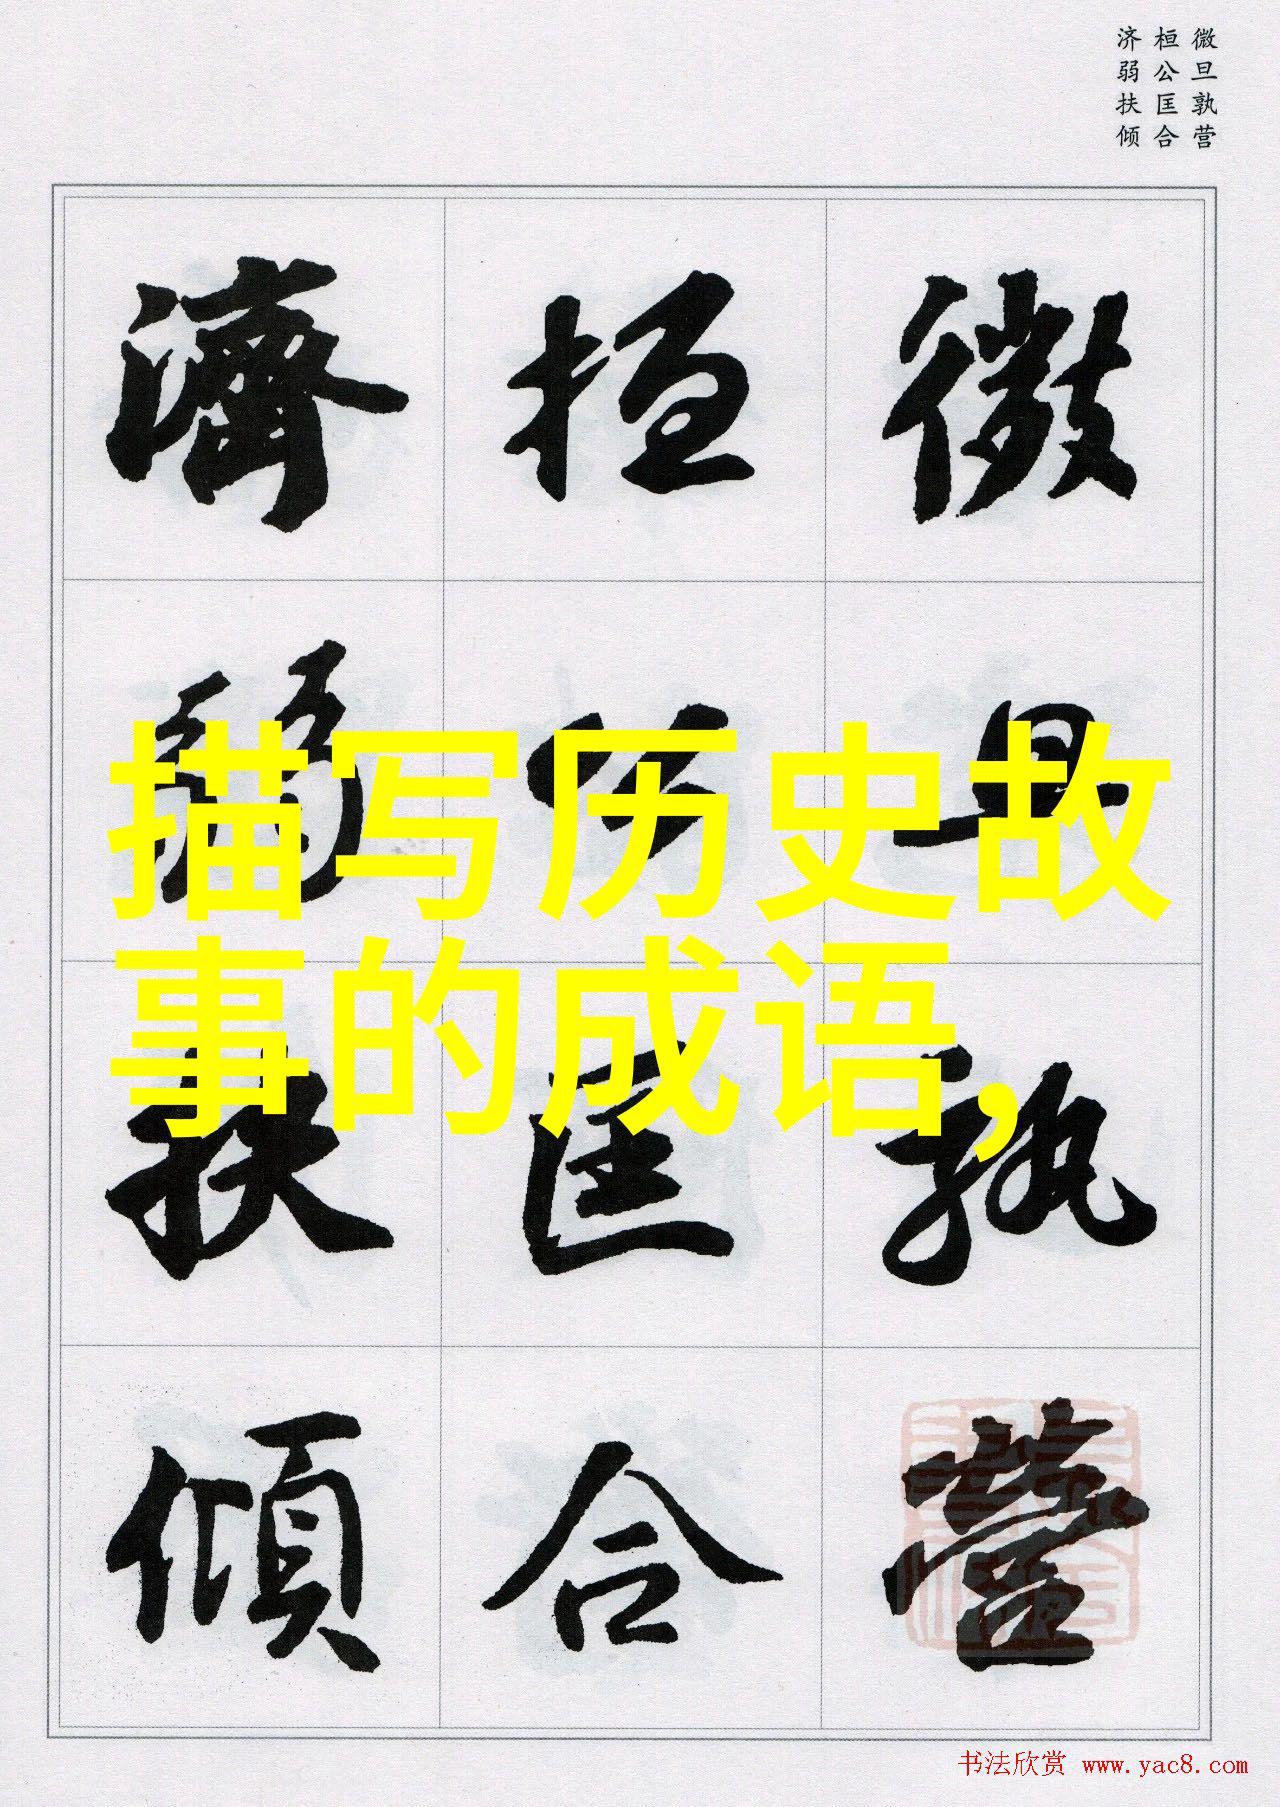 微旦孰营
桓公匡合
济弱扶倾
微旦孰營
桓公匡合
濟弱扶傾
描写历史故
事的成语,
书法欣赏 www.yac8.com